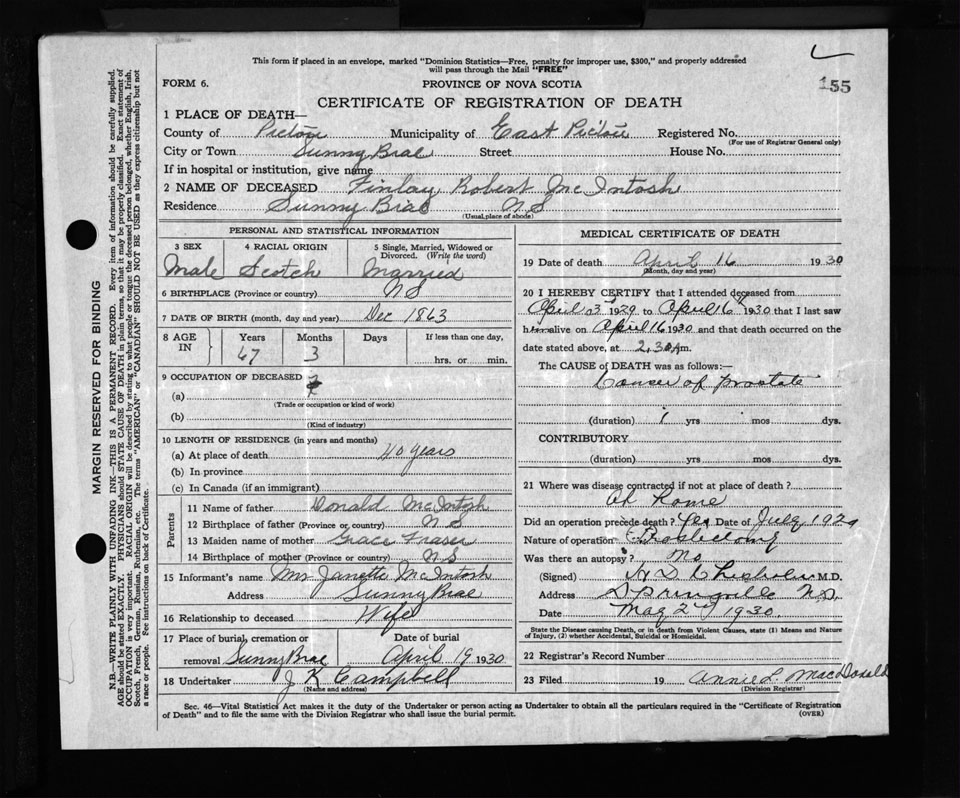 This form if placed in an envelope, marked "Dominion Statistics—Free, penalty for improper use, $300," and properly addressed
will pass through the Mail "FREE"
155
FORM 6.
PROVINCE OF NOVA SCOTIA
CERTIFICATE OF REGISTRATION OF DEATH
1 PLACE OF DEATH—
County of Pictou Municipality of East Pictou Registered No.
(For use of Registrar General only)
City or Town Sunny Brae Street House No.
If in hospital or institution, give name
2 NAME OF DECEASED Finlay Robert McIntosh
Residence Sunny Brae N S
(Usual place of abode)
PERSONAL AND STATISTICAL INFORMATION
3 SEX 4 RACIAL ORIGIN 5 Single, Married, Widowed or
Divorced. (Write the word)
Male Scotch Married
6 BIRTHPLACE (Province or country) N S
7 DATE OF BIRTH (month, day and year) Dec 1863
8 AGE IN Years Months Days If less than one day,
67 3 hrs. or min.
9 OCCUPATION OF DECEASED
(a)
(Trade or occupation or kind of work)
(b)
(Kind of industry)
10 LENGTH OF RESIDENCE (in years and months)
(a) At place of death 40 years
(b) In province
(c) In Canada (if an immigrant)
Parents
11 Name of father Donald McIntosh
12 Birthplace of father (Province or country) N S
13 Maiden name of mother Grace Fraser
14 Birthplace of mother (Province or country) N S
15 Informant's name Mrs Janette McIntosh
Address Sunny Brae
16 Relationship to deceased Wife
17 Place of burial, cremation or Date of burial
removal Sunny Brae April 19 1930
18 Undertaker J K Campbell
(Name and address)
MEDICAL CERTIFICATE OF DEATH
19 Date of death April 16 1930
(Month, day and year)
20 I HEREBY CERTIFY that I attended deceased from
April 3rd 1929 to April 16th 1930 that I last saw
him alive on April 16 1930 and that death occurred on the
date stated above, at 2.30 A m.
The CAUSE OF DEATH was as follows:—
Cancer of prostate
(duration) 1 yrs mos dys.
CONTRIBUTORY
(duration) yrs mos dys.
21 Where was disease contracted if not at place of death?
At Home
Did an operation precede death? Yes Date of July 1929
Nature of operation
Was there an autopsy? No
(Signed) H D Chisholm M.D.
Address Springville N.S.
Date May 2nd 1930
State the Disease causing Death, or in death from Violent Causes, state (1) Means and Nature
of Injury, (2) whether Accidental, Suicidal or Homicidal.
22 Registrar's Record Number
23 Filed 19 Annie L. MacDonald
(Division Registrar)
Sec. 46—Vital Statistics Act makes it the duty of the Undertaker or person acting as Undertaker to obtain all the particulars required in the "Certificate of Registration
of Death" and to file the same with the Division Registrar who shall issue the burial permit. (OVER)
MARGIN RESERVED FOR BINDING
N.B.—WRITE PLAINLY WITH UNFADING INK—THIS IS A PERMANENT RECORD. Every item of information should be carefully supplied.
AGE should be stated EXACTLY. PHYSICIANS should STATE CAUSE OF DEATH in plain terms, so that it may be properly classified. Exact statement of
OCCUPATION is very important. RACIAL ORIGIN will be described by stating to what people or tongue the deceased person belonged, whether English, Irish,
Scotch, French, German, Russian, Ruthenian, etc. The terms "AMERICAN" or "CANADIAN" SHOULD NOT BE USED as they express citizenship but not
a race or people. See instructions on back of Certificate.